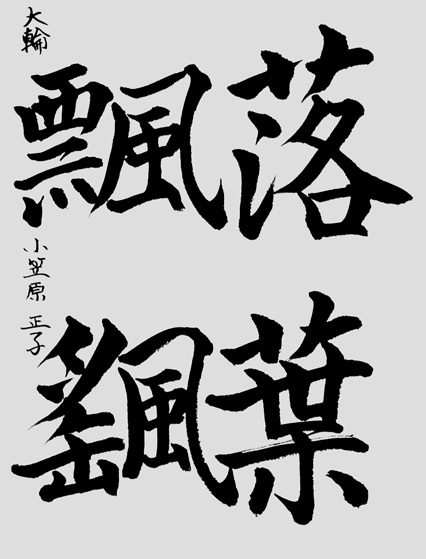 落葉
飄颻
大輪 小笠原 正子